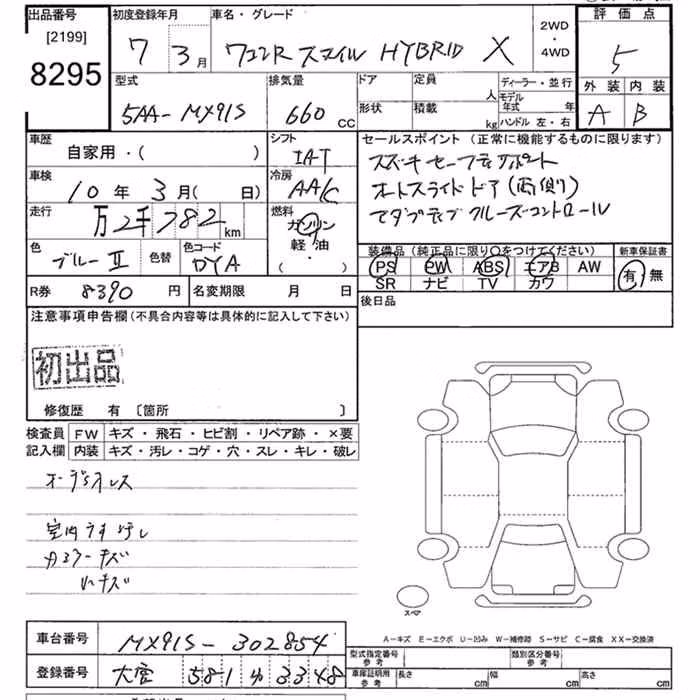 出品番号
[2199]
8295
初度登録年月
7 3月
車名・グレード
ワゴンR スマイル HYBRID X
2WD
・
4WD
評価点
5
外装 内装
A B
型式
5AA-MX91S
排気量
660 CC
ドア
形状
定員
人
積載
kg
ディーラー・並行
モデル年式 年
ハンドル 左・右
車歴
自家用・( )
車検
10年 3月( 日)
走行
万 2千 782 km
色
ブルーⅡ
色替
色コード
DYA
シフト
IAT
冷房
AAC
燃料
ガソリン
軽油
( ・ )
セールスポイント (正常に機能するものに限ります)
スズキセーフティサポート
オートスライドドア(両側)
アダプティブクルーズコントロール
装備品(純正品に限り○をつけてください)
PS PW ABS エアB AW
SR ナビ TV カワ
新車保証書
有 無
R券 8390 円
名変期限 月 日
後日品
注意事項申告欄(不具合内容等は具体的に記入して下さい)
初出品
修復歴 有 〔箇所 〕
検査員 FW キズ・飛石・ヒビ割・リペア跡・×要
記入欄 内装 キズ・汚レ・コゲ・穴・スレ・キレ・破レ
オーディオレス
室内うす汚れ
スペア
A-キズ E-エクボ U-凹み W-補修跡 S-サビ C-腐食 XX-交換済
車台番号 MX91S-302854
登録番号 大宮 581 ゆ 3348
型式指定番号 参考
類別区分番号 参考
車庫証明用 参考 長さ cm 幅 cm 高さ cm